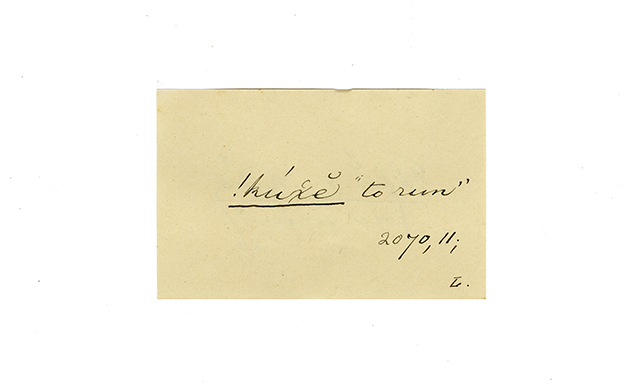 !kúẍĕ "to run"
2070, 11;
L.